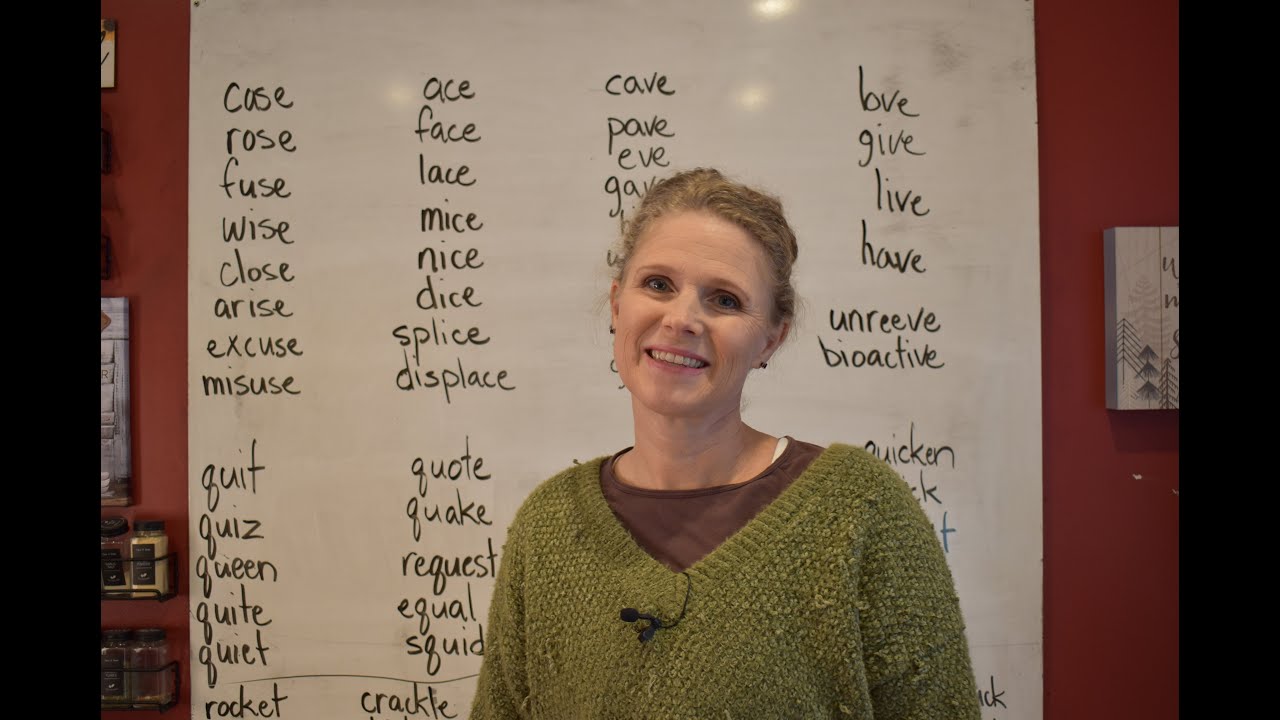 case ace cave love
rose face pave give
eve
fuse lace live
wise mice have
close nice
arise dice unreeve
excuse splice bioactive
misuse displace
quit quote quicken
quiz quake
queen request
quite equal
quiet squid
rocket crackle